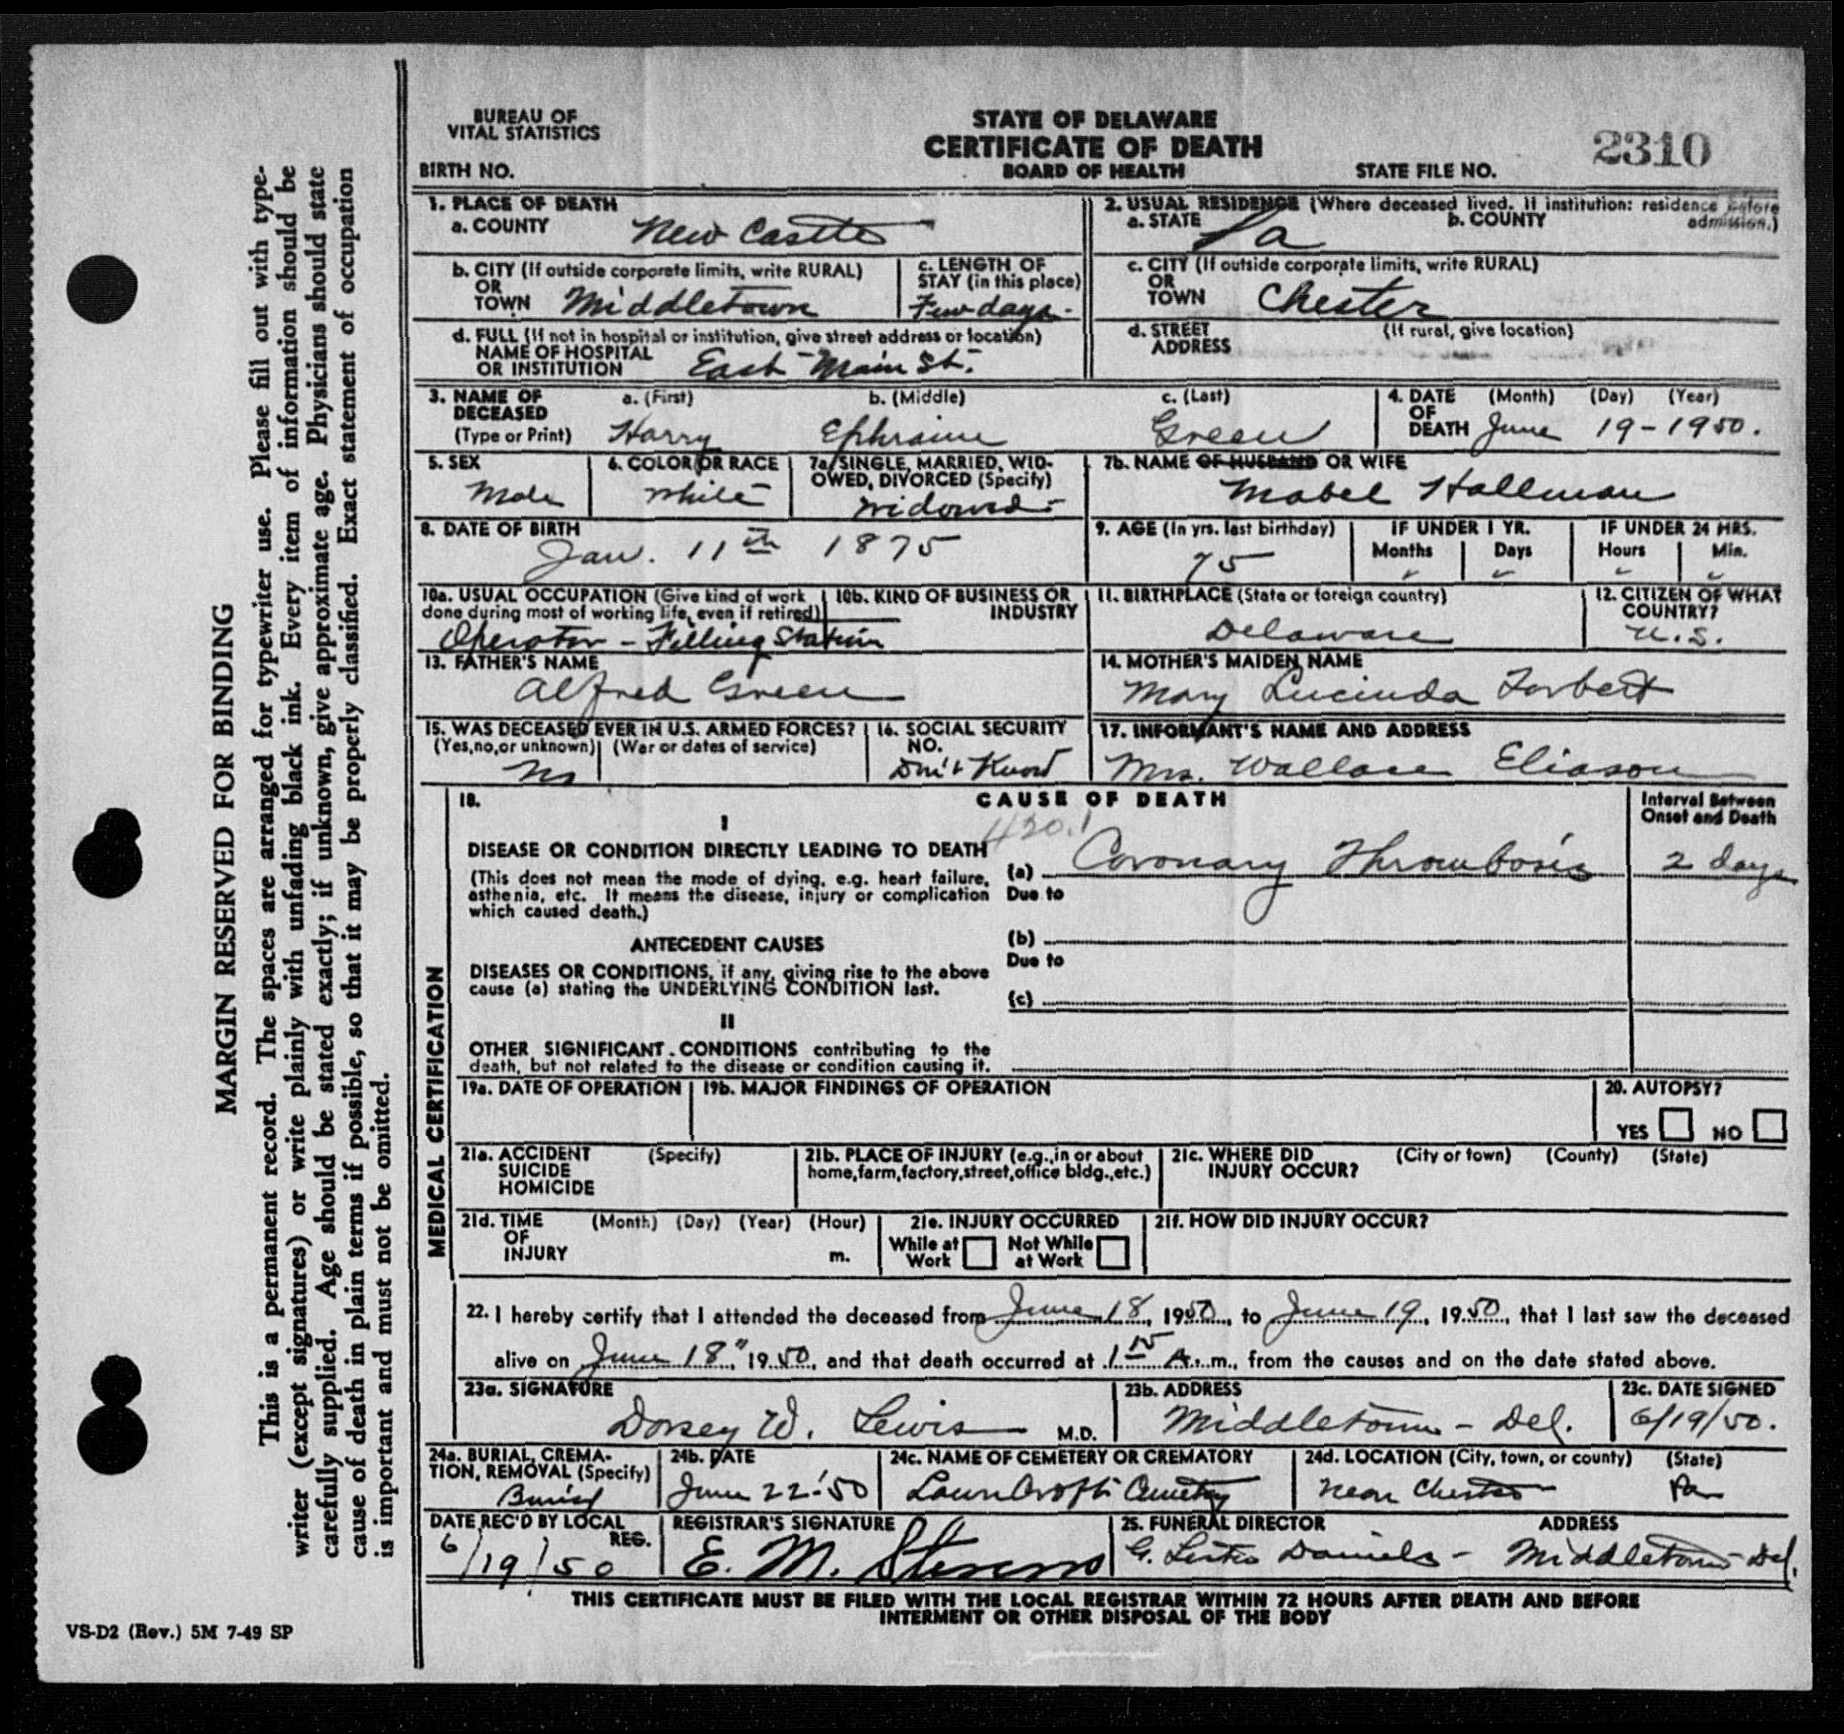 BUREAU OF
VITAL STATISTICS
BIRTH NO.
STATE OF DELAWARE
CERTIFICATE OF DEATH
BOARD OF HEALTH
STATE FILE NO.
2310
1. PLACE OF DEATH
a. COUNTY New Castle
2. USUAL RESIDENCE (Where deceased lived. If institution: residence before admission.)
a. STATE Pa b. COUNTY
b. CITY (If outside corporate limits, write RURAL)
OR
TOWN Middletown
c. LENGTH OF
STAY (in this place)
Few days.
c. CITY (If outside corporate limits, write RURAL)
OR
TOWN Chester
d. FULL (If not in hospital or institution, give street address or location)
NAME OF HOSPITAL
OR INSTITUTION East Main St.
d. STREET (If rural, give location)
ADDRESS
3. NAME OF
DECEASED
(Type or Print)
a. (First) Harry
b. (Middle) Ephraim
c. (Last) Green
4. DATE (Month) (Day) (Year)
OF
DEATH June 19-1950.
5. SEX
Male
6. COLOR OR RACE
White
7a. SINGLE, MARRIED, WID-
OWED, DIVORCED (Specify)
Widowed-
7b. NAME OF HUSBAND OR WIFE
Mabel Hallman
8. DATE OF BIRTH
Jan. 11th 1875
9. AGE (In yrs. last birthday)
75
IF UNDER 1 YR.
Months Days
IF UNDER 24 HRS.
Hours Min.
10a. USUAL OCCUPATION (Give kind of work
done during most of working life, even if retired)
10b. KIND OF BUSINESS OR
INDUSTRY
Operator - Filling Station
11. BIRTHPLACE (State or foreign country)
Delaware
12. CITIZEN OF WHAT
COUNTRY?
U.S.
13. FATHER'S NAME
Alfred Green
14. MOTHER'S MAIDEN NAME
Mary Lucinda Torbert
15. WAS DECEASED EVER IN U.S. ARMED FORCES?
(Yes, no, or unknown) (War or dates of service)
No
16. SOCIAL SECURITY
NO.
Don't Know
17. INFORMANT'S NAME AND ADDRESS
Mrs. Wallace Eliason
MEDICAL CERTIFICATION
18. CAUSE OF DEATH
Interval Between
Onset and Death
I
420.1
DISEASE OR CONDITION DIRECTLY LEADING TO DEATH
(a) Coronary Thrombosis 2 days
(This does not mean the mode of dying, e.g. heart failure,
asthenia, etc. It means the disease, injury or complication
which caused death.)
Due to
ANTECEDENT CAUSES
(b)
Due to
DISEASES OR CONDITIONS, if any, giving rise to the above
cause (a) stating the UNDERLYING CONDITION last.
(c)
II
OTHER SIGNIFICANT CONDITIONS contributing to the
death, but not related to the disease or condition causing it.
19a. DATE OF OPERATION
19b. MAJOR FINDINGS OF OPERATION
20. AUTOPSY?
YES NO
21a. ACCIDENT (Specify)
SUICIDE
HOMICIDE
21b. PLACE OF INJURY (e.g., in or about
home, farm, factory, street, office bldg., etc.)
21c. WHERE DID (City or town) (County) (State)
INJURY OCCUR?
21d. TIME (Month) (Day) (Year) (Hour)
OF
INJURY m.
21e. INJURY OCCURRED
While at Work Not While at Work
21f. HOW DID INJURY OCCUR?
22. I hereby certify that I attended the deceased from June 18, 1950, to June 19, 1950, that I last saw the deceased
alive on June 18, 1950, and that death occurred at 1 15 A. m., from the causes and on the date stated above.
23a. SIGNATURE
Dorsey W. Lewis M.D.
23b. ADDRESS
Middletown - Del.
23c. DATE SIGNED
6/19/50.
24a. BURIAL, CREMA-
TION, REMOVAL (Specify)
Burial
24b. DATE
June 22-'50
24c. NAME OF CEMETERY OR CREMATORY
Lawn Croft Cemetery
24d. LOCATION (City, town, or county) (State)
Near Chester Pa
DATE REC'D BY LOCAL
REG.
6/19/50
REGISTRAR'S SIGNATURE
E. M. Stevens
25. FUNERAL DIRECTOR ADDRESS
G. Daniels - Middletown Del.
THIS CERTIFICATE MUST BE FILED WITH THE LOCAL REGISTRAR WITHIN 72 HOURS AFTER DEATH AND BEFORE
INTERMENT OR OTHER DISPOSAL OF THE BODY
MARGIN RESERVED FOR BINDING
This is a permanent record. The spaces are arranged for typewriter use. Please fill out with type-
writer (except signatures) or write plainly with unfading black ink. Every item of information should be
carefully supplied. Age should be stated exactly; if unknown, give approximate age. Physicians should state
cause of death in plain terms if possible, so that it may be properly classified. Exact statement of occupation
is important and must not be omitted.
VS-D2 (Rev.) 5M 7-49 SP